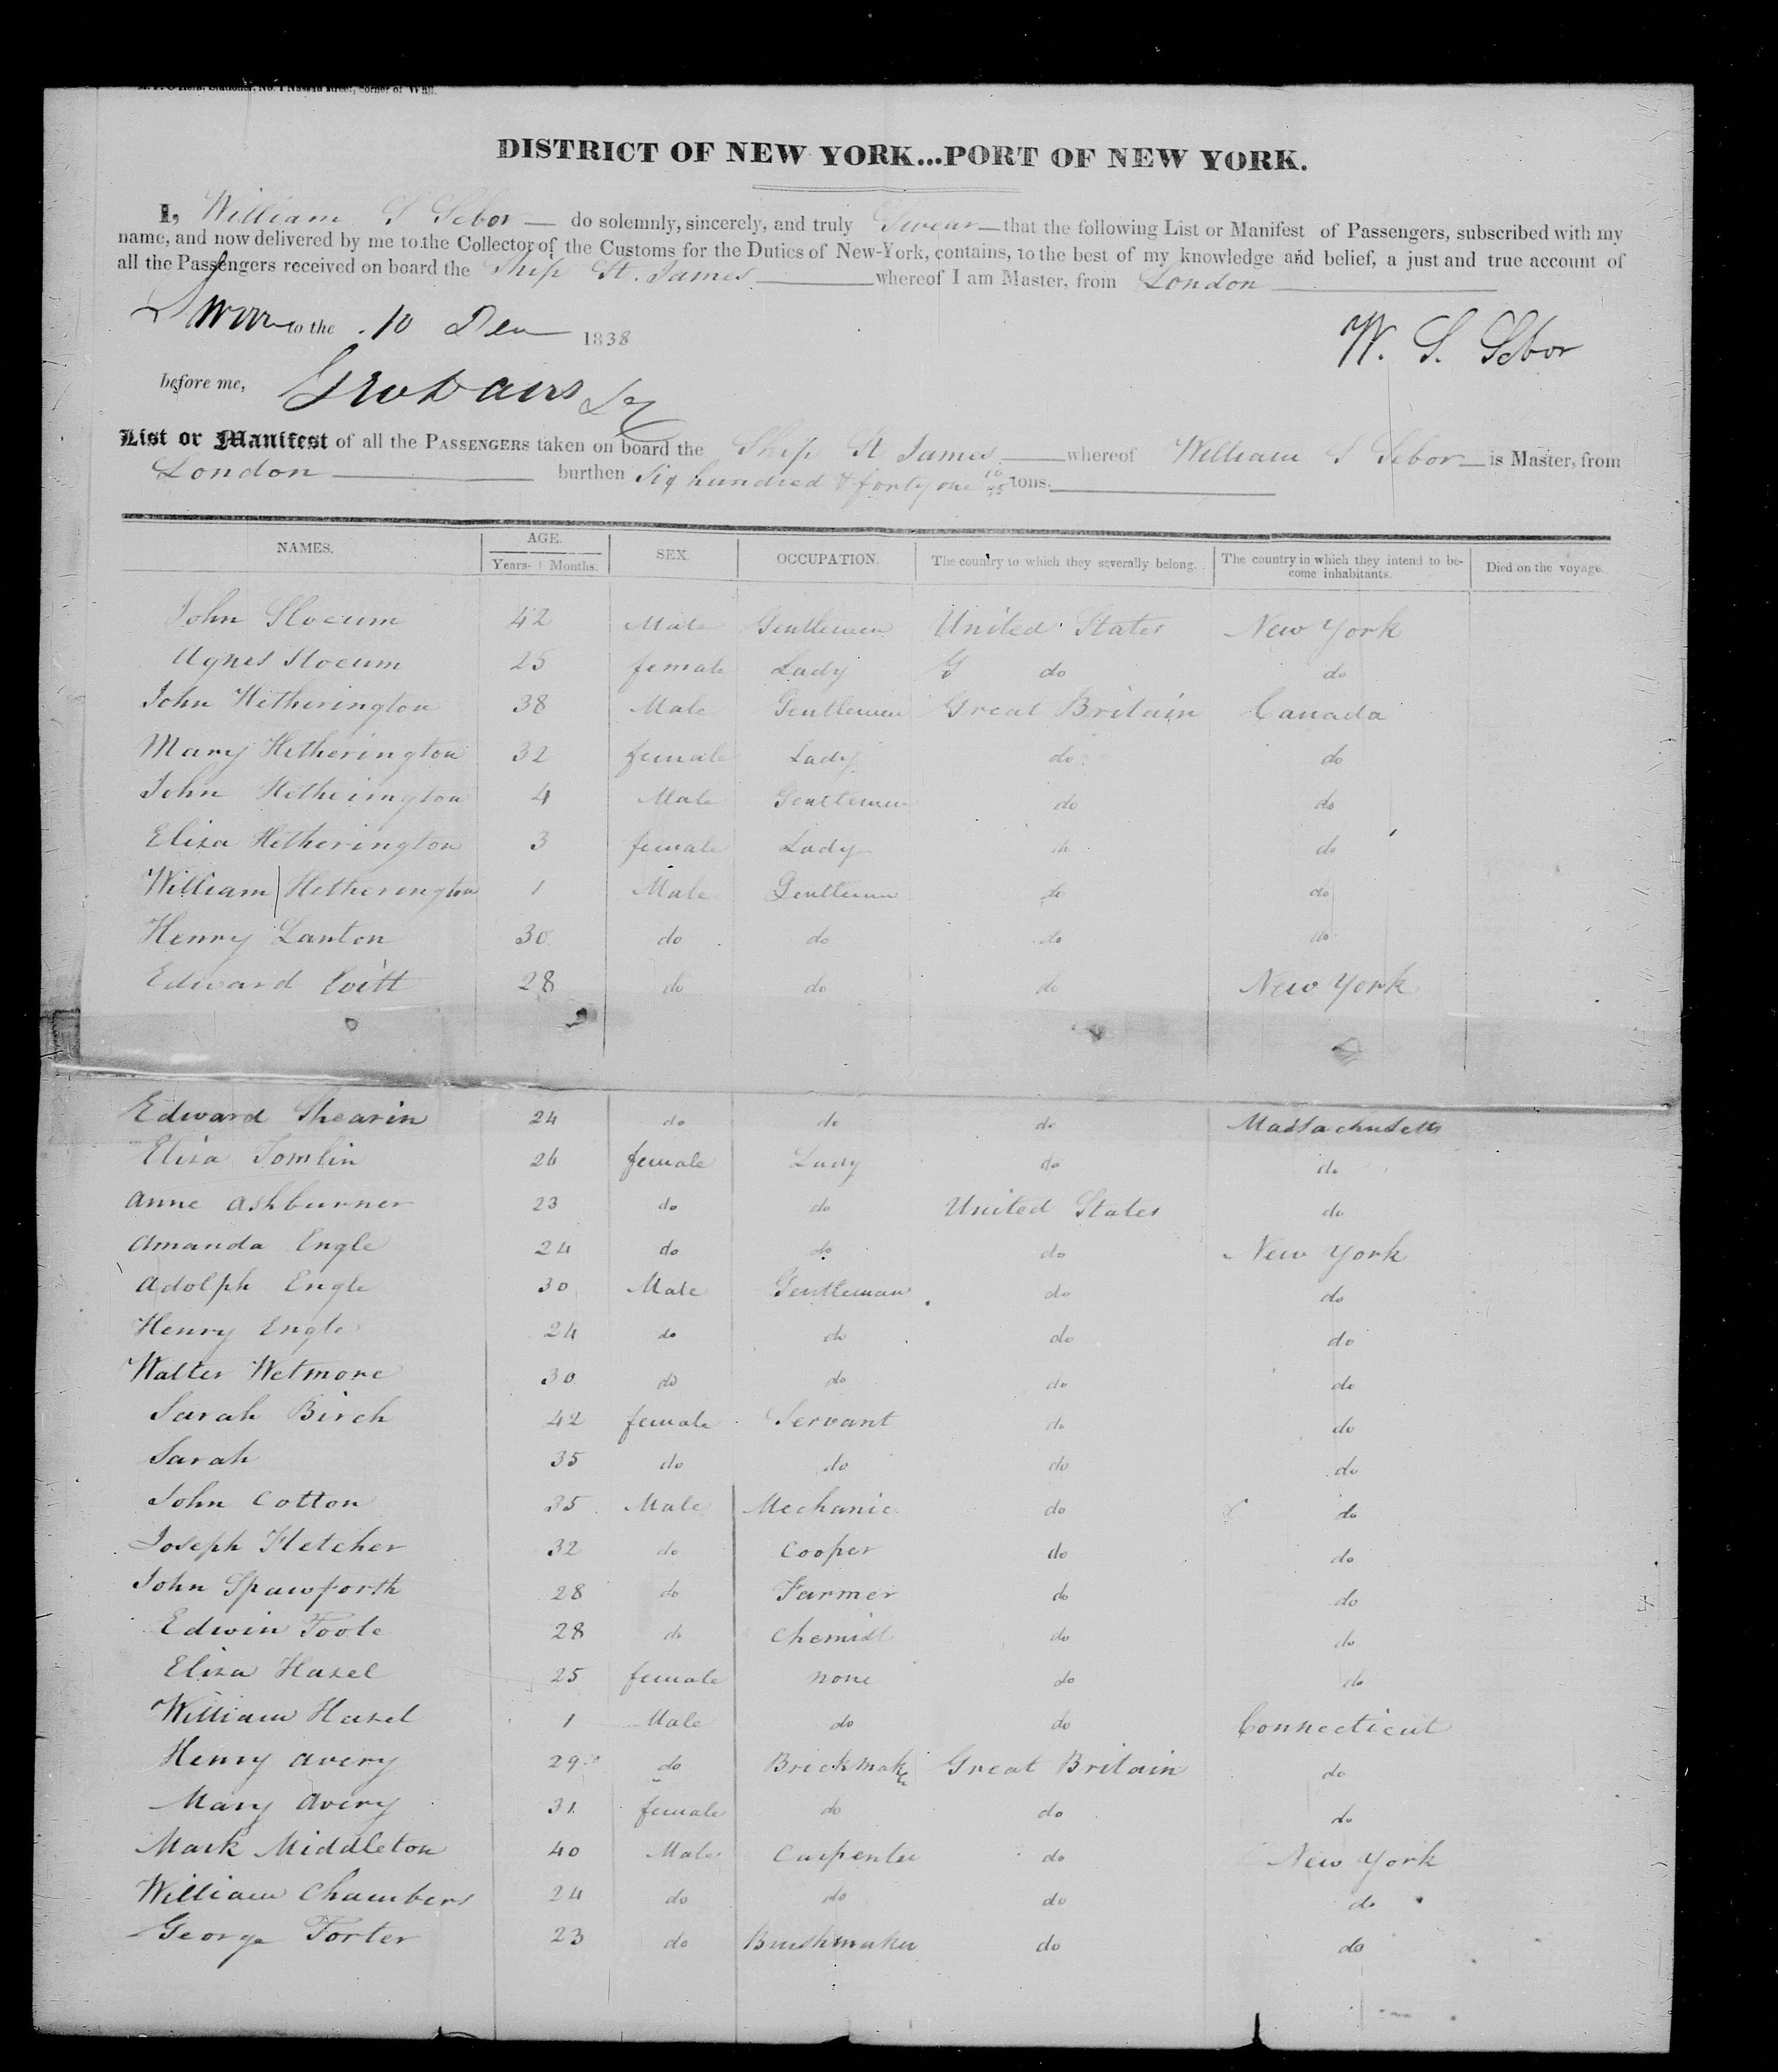 DISTRICT OF NEW YORK...PORT OF NEW YORK.
I, William S Sebor do solemnly, sincerely, and truly Swear that the following List or Manifest of Passengers, subscribed with my
name, and now delivered by me to the Collector of the Customs for the Duties of New-York, contains, to the best of my knowledge and belief, a just and true account of
all the Passengers received on board the Ship St. James whereof I am Master, from London
Sworn to the 10 Dec 1838
W. S. Sebor
before me,
List or Manifest of all the PASSENGERS taken on board the Ship St James whereof William S Sebor is Master, from
London burthen Six hundred & forty one 10/95 tons.
NAMES. AGE. SEX. OCCUPATION. The country to which they severally belong. The country in which they intend to be- Died on the voyage.
Years. Months. come inhabitants.
John Slocum 42 Male Gentlemen United States New York
Agnes Slocum 25 female Lady do do
John Hetherington 38 Male Gentlemen Great Britain Canada
Mary Hetherington 32 female Lady do do
John Hetherington 4 Male Gentlemen do do
Eliza Hetherington 3 female Lady do do
William Hetherington 1 Male Gentleman do do
Henry Lanton 30 do do do do
Edward Evitt 28 do do do New York
Edward Shearin 24 do do do Massachusetts
Eliza Tomlin 26 female Lady do do
Anne Ashburner 23 do do United States do
Amanda Engle 24 do do do New York
Adolph Engle 30 Male Gentleman do do
Henry Engle 24 do do do do
Walter Wetmore 30 do do do do
Sarah Birch 42 female Servant do do
Sarah 35 do do do do
John Cotton 35 Male Mechanic do do
Joseph Fletcher 32 do Cooper do do
John Spawforth 28 do Farmer do do
Edwin Toole 28 do Chemist do do
Eliza Hazel 25 female none do do
William Hazel 1 Male do do Connecticut
Henry Avery 29 do Brickmaker Great Britain do
Mary Avery 31 female do do do
Mark Middleton 40 Male Carpenter do New York
William Chambers 24 do do do do
George Forter 23 do Brushmaker do do